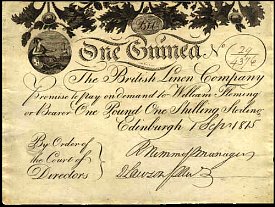 One Guinea No 29/4376
The British Linen Company
Promise to pay on demand to William Fleming
or Bearer One Pound One Shilling Sterling
Edinburgh 1 Sepr 1815
By Order
of the
Court of
Directors
Manager